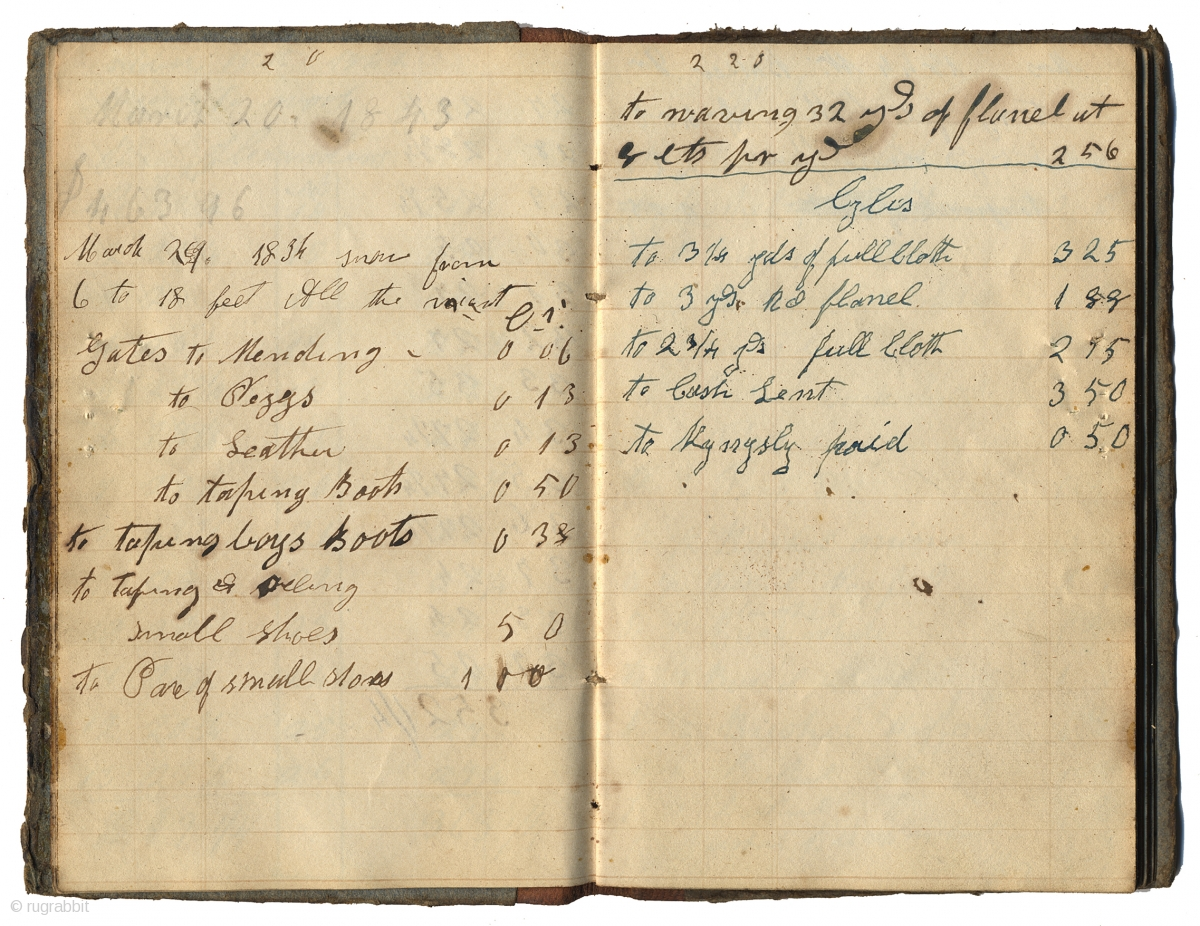 2 0
March 20. 1843
$
463 96
March 29. 1834 snow from
6 to 18 feet All the
Gates to Mending - 0 06
to Peggs 0 13
to Leather 0 13
to taping Boots 0 50
to taping boys Boots 0 38
to taping &
small shoes 50
to Pare of small 1 00
2 2 0
to waving 32 yds of flanel at
8 cts pr yd 256
to 3 1/4 yds of full Cloth 3 25
to 3 yds flanel 1 88
to 2 3/4 yds full Cloth 2 95
to Cash Lent 3 50
to paid 0 50
© rugrabbit